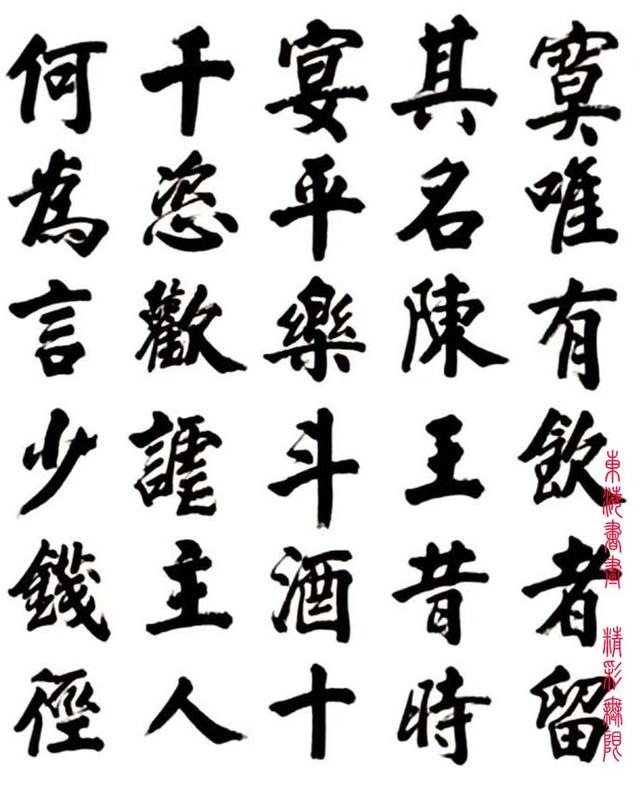 寞唯有飲者留
其名陳王昔時
宴平樂斗酒十
千恣歡謔主人
何為言少錢徑
東海書畫 精彩無限